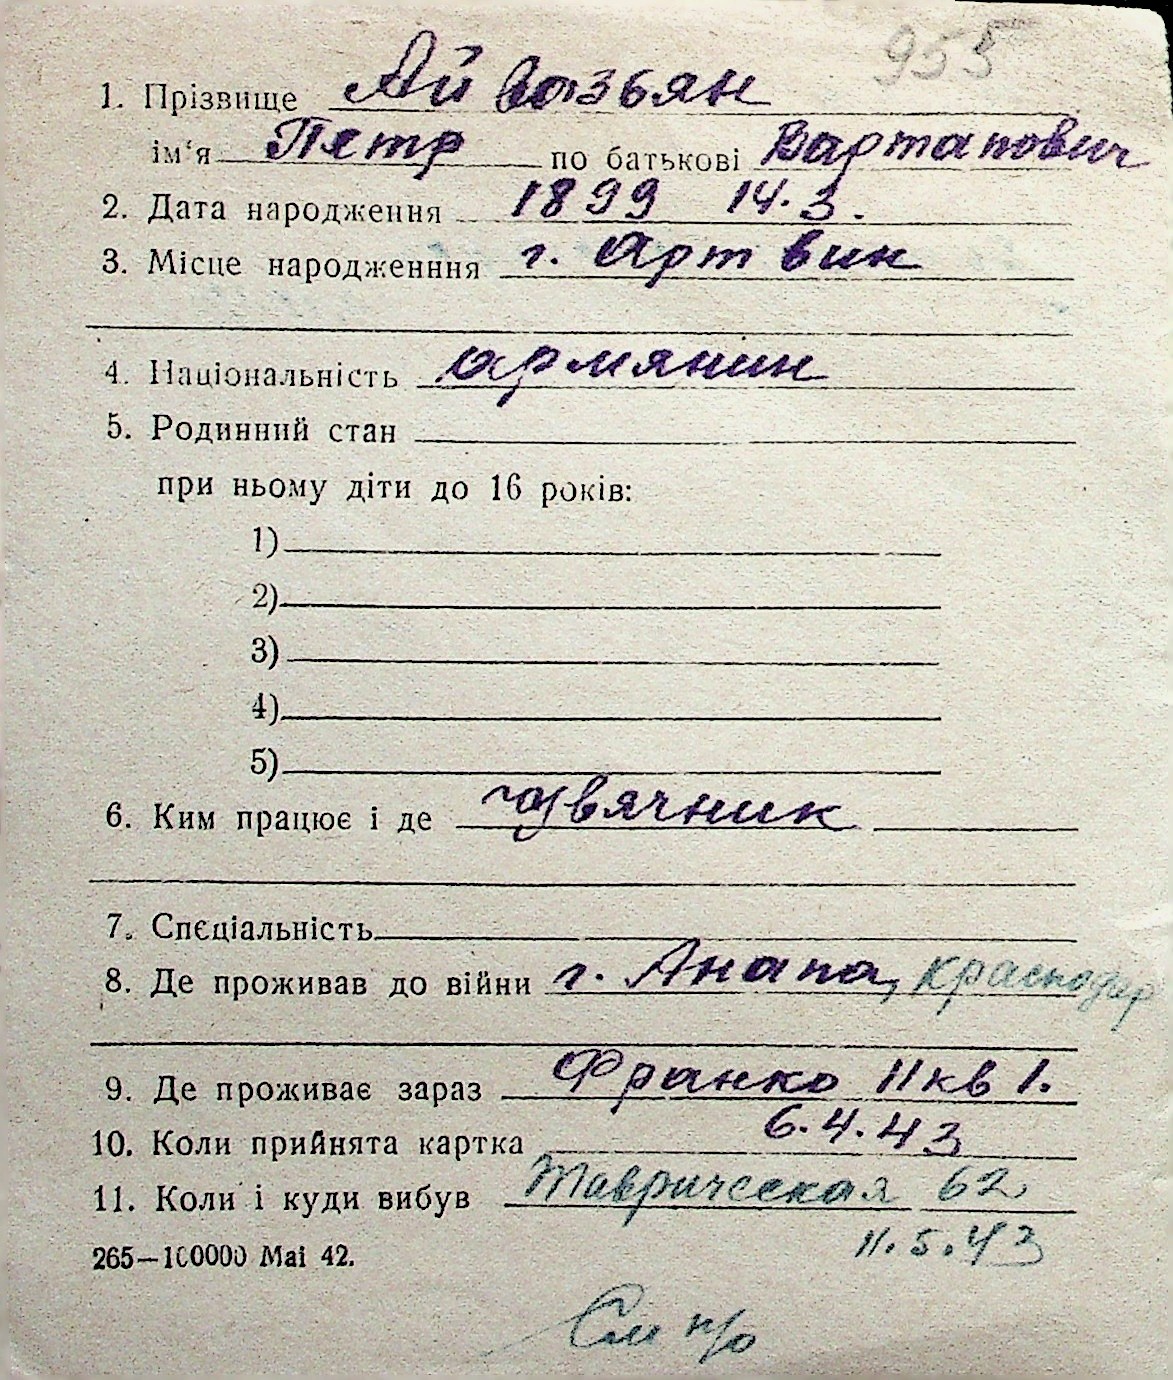 955
1. Прізвище Айвазьян
ім'я Петр по батькові Вартанович
2. Дата народження 1899 14.3.
3. Місце народженння г. Артвин
4. Національність армянин
5. Родинний стан
при ньому діти до 16 років:
1)
2)
3)
4)
5)
6. Ким працює і де
7. Спєціальність
8. Де проживав до війни г. Анапа, Краснодар
9. Де проживає зараз Франко 11 кв 1.
10. Коли прийнята картка 6.4.43
11. Коли і куди вибув Таврическая 62
11.5.43
265—100000 Mai 42.
См н/о